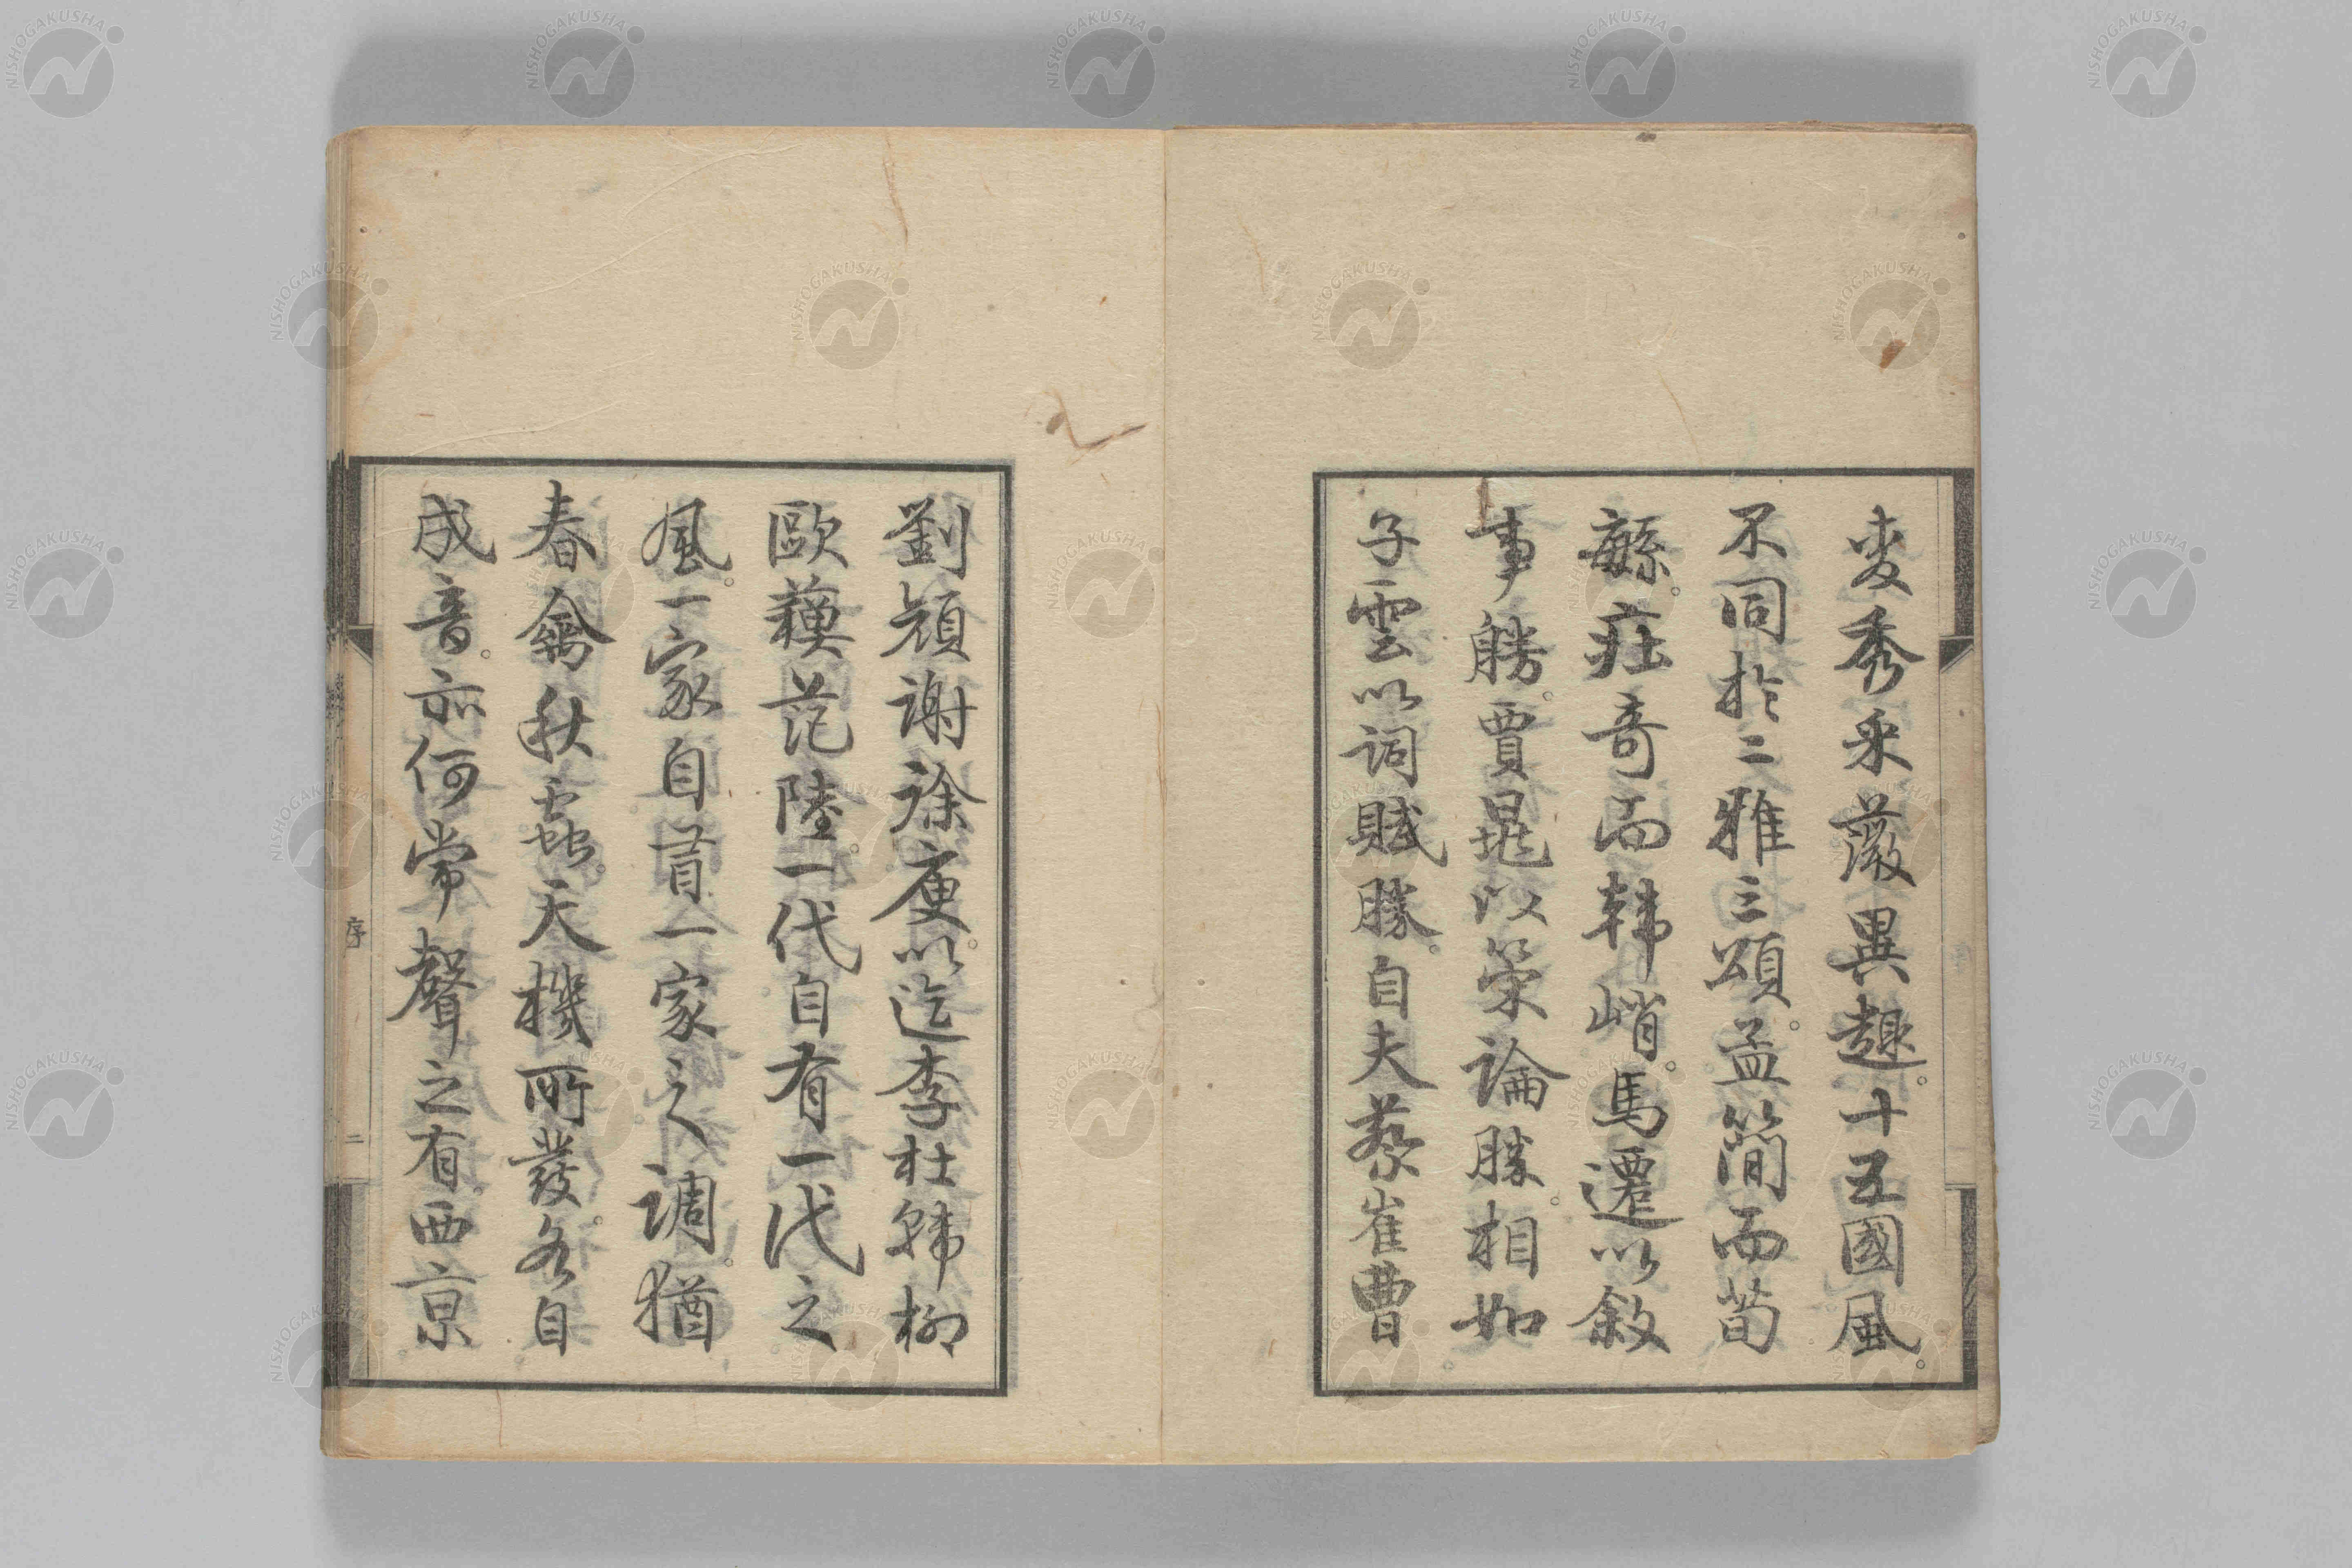 麥秀采薇異趣。十五國風。
不同於二雅三頌。孟簡而荀
繇。莊奇而韓峭。馬遷以敘
事勝。賈晁以策論勝。相如
子雲以詞賦勝。自夫蔡崔曹
劉顏謝徐庾。以迄李杜韓柳
歐蘓范陸。一代自有一代之
風。一家自言一家之調。猶
春禽秋蟲。天機所發。各自
成音。亦何常聲之有。西京
序
二
NISHOGAKUSHA